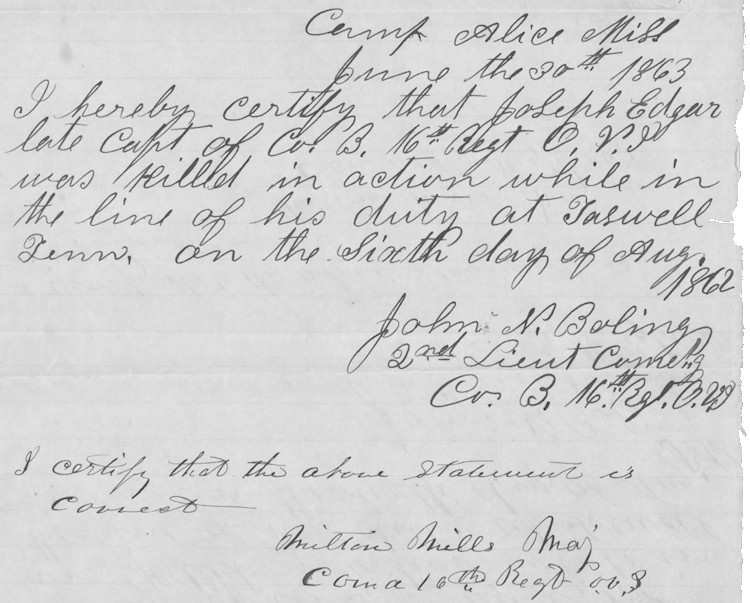 Camp Alice Miss
June the 30th 1863
I hereby certify that Joseph Edgar
late Capt of Co. B. 16th Regt O. V. I
was killed in action while in
the line of his duty at Taswell
Tenn. on the Sixth day of Aug.
1862
John N. Boling
2nd Lieut Comdg
Co. B. 16th Regt. O. V I
I certify that the above statement is
correct
Milton Mills Maj
Comd 16th Regt O. V. I